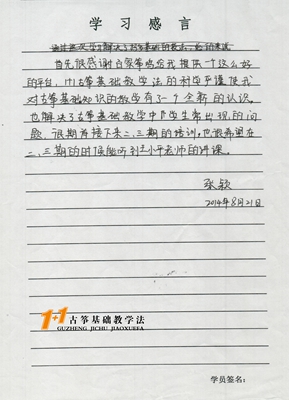 学习感言
首先很感谢白家筝鸣给我提供了这么好
的平台，1+1古筝基础教学法的科学严谨使我
对古筝基础知识的教学有了一个全新的认识，
也解决了古筝基础教学中学生常出现的问
题、很期待接下来二、三期的培训，也很希望在
二、三期的时候能听到王小平老师的讲课。
张颖
2014年8月21日
1+1古筝基础教学法
GUZHENG JICHU JIAOXUEFA
学员签名：